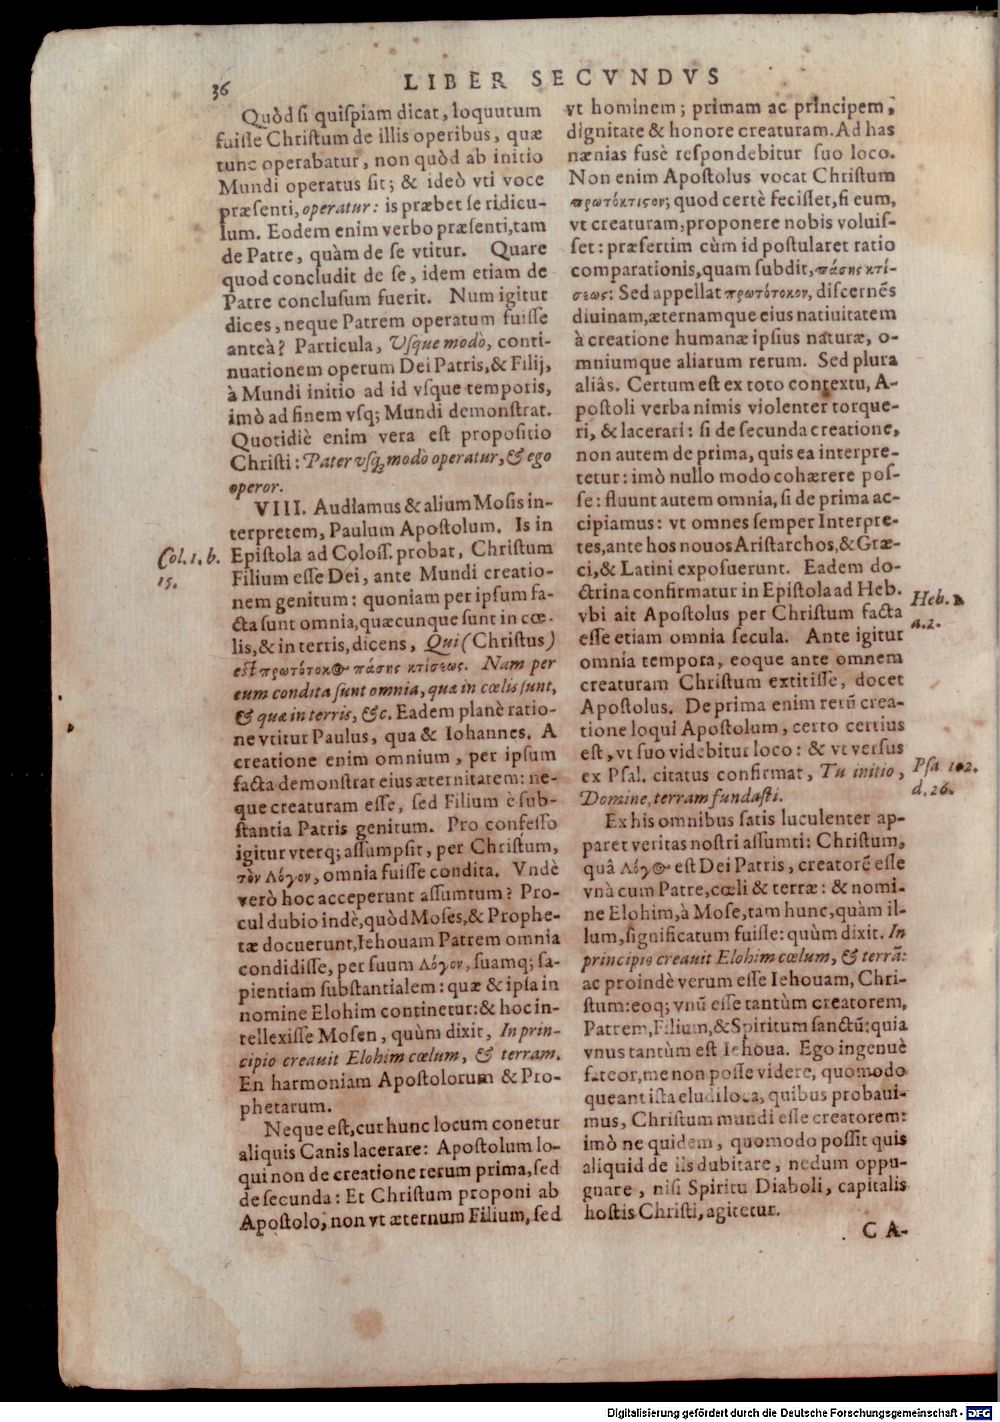 36
LIBER SECVNDVS
Quòd si quispiam dicat, loquutum
fuisse Christum de illis operibus, quæ
tunc operabatur, non quòd ab initio
Mundi operatus sit; & ideò vti voce
præsenti, operatur: is præbet se ridicu-
lum. Eodem enim verbo præsenti, tam
de Patre, quàm de se vtitur. Quare
quod concludit de se, idem etiam de
Patre conclusum fuerit. Num igitur
dices, neque Patrem operatum fuisse
anteà? Particula, Vsque modò, conti-
nuationem operum Dei Patris, & Filij,
à Mundi initio ad id vsque temporis,
imò ad finem vsq; Mundi demonstrat.
Quotidiè enim vera est propositio
Christi: Pater vsq; modò operatur, & ego
operor.
VIII. Audiamus & alium Mosis in-
terpretem, Paulum Apostolum. Is in
Epistola ad Coloss. probat, Christum
Filium esse Dei, ante Mundi creatio-
nem genitum: quoniam per ipsum fa-
cta sunt omnia, quæcunque sunt in cœ-
lis, & in terris, dicens, Qui (Christus)
est πρωτότοκος πάσης κτίσεως. Nam per
eum condita sunt omnia, quæ in cœlis sunt,
& quæ in terris, &c. Eadem planè ratio-
ne vtitur Paulus, qua & Iohannes. A
creatione enim omnium, per ipsum
facta demonstrat eius æternitatem: ne-
que creaturam esse, sed Filium è sub-
stantia Patris genitum. Pro confesso
igitur vterq; assumpsit, per Christum,
τὸν Λόγον, omnia fuisse condita. Vndè
verò hoc acceperunt assumtum? Pro-
cul dubio indè, quòd Moses, & Prophe-
tæ docuerunt, Iehouam Patrem omnia
condidisse, per suum Λόγον, suamq; sa-
pientiam substantialem: quæ & ipsa in
nomine Elohim continetur: & hoc in-
tellexisse Mosen, quùm dixit, In prin-
cipio creauit Elohim cœlum, & terram.
En harmoniam Apostolorum & Pro-
phetarum.
Neque est, cur hunc locum conetur
aliquis Canis lacerare: Apostolum lo-
qui non de creatione rerum prima, sed
de secunda: Et Christum proponi ab
Apostolo, non vt æternum Filium, sed
Col. 1. b.
15.
vt hominem; primam ac principem,
dignitate & honore creaturam. Ad has
nænias fusè respondebitur suo loco.
Non enim Apostolus vocat Christum
πρωτόκτιστον; quod certè fecisset, si eum,
vt creaturam, proponere nobis voluis-
set: præsertim cùm id postularet ratio
comparationis, quam subdit, πάσης κτί-
σεως: Sed appellat πρωτότοκον, discernẽs
diuinam, æternamque eius natiuitatem
à creatione humanæ ipsius naturæ, o-
mniumque aliarum rerum. Sed plura
aliâs. Certum est ex toto contextu, A-
postoli verba nimis violenter torque-
ri, & lacerari: si de secunda creatione,
non autem de prima, quis ea interpre-
tetur: imò nullo modo cohærere pos-
se: fluunt autem omnia, si de prima ac-
cipiamus: vt omnes semper Interpre-
tes, ante hos nouos Aristarchos, & Græ-
ci, & Latini exposuerunt. Eadem do-
ctrina confirmatur in Epistola ad Heb.
vbi ait Apostolus per Christum facta
esse etiam omnia secula. Ante igitur
omnia tempora, eoque ante omnem
creaturam Christum extitisse, docet
Apostolus. De prima enim rerũ crea-
tione loqui Apostolum, certo certius
est, vt suo videbitur loco: & vt versus
ex Psal. citatus confirmat, Tu initio,
Domine, terram fundasti.
Ex his omnibus satis luculenter ap-
paret veritas nostri assumti: Christum,
quâ Λόγος est Dei Patris, creatorẽ esse
vnà cum Patre, cœli & terræ: & nomi-
ne Elohim, à Mose, tam hunc, quàm il-
lum, significatum fuisse: quùm dixit. In
principio creauit Elohim cœlum, & terrã:
ac proindè verum esse Iehouam, Chri-
stum: eoq; vnũ esse tantùm creatorem,
Patrem, Filium, & Spiritum sanctũ: quia
vnus tantùm est Iehoua. Ego ingenuè
fateor, me non posse videre, quomodo
queant ista eludi loca, quibus probaui-
mus, Christum mundi esse creatorem:
imò ne quidem, quomodo possit quis
aliquid de iis dubitare, nedum oppu-
gnare, nisi Spiritu Diaboli, capitalis
hostis Christi, agitetur.
Heb. 1.
a. 2.
Psa. 102.
d. 26.
C A-
Digitalisierung gefördert durch die Deutsche Forschungsgemeinschaft - DFG